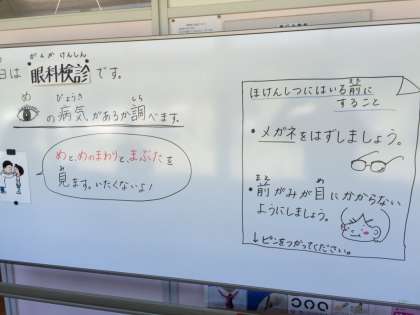 がんかけんしん
日は 眼科検診 です。
め びょうき しら
の病気があるか調べます。
めと、めのまわりと、まぶたを
み
見ます。いたくないよ!
ほけんしつにはいる前に
まえ
すること
・メガネをはずしましょう。
まえ め
・前がみが目にかからない
ようにしましょう。
↓ピンをつかってください。